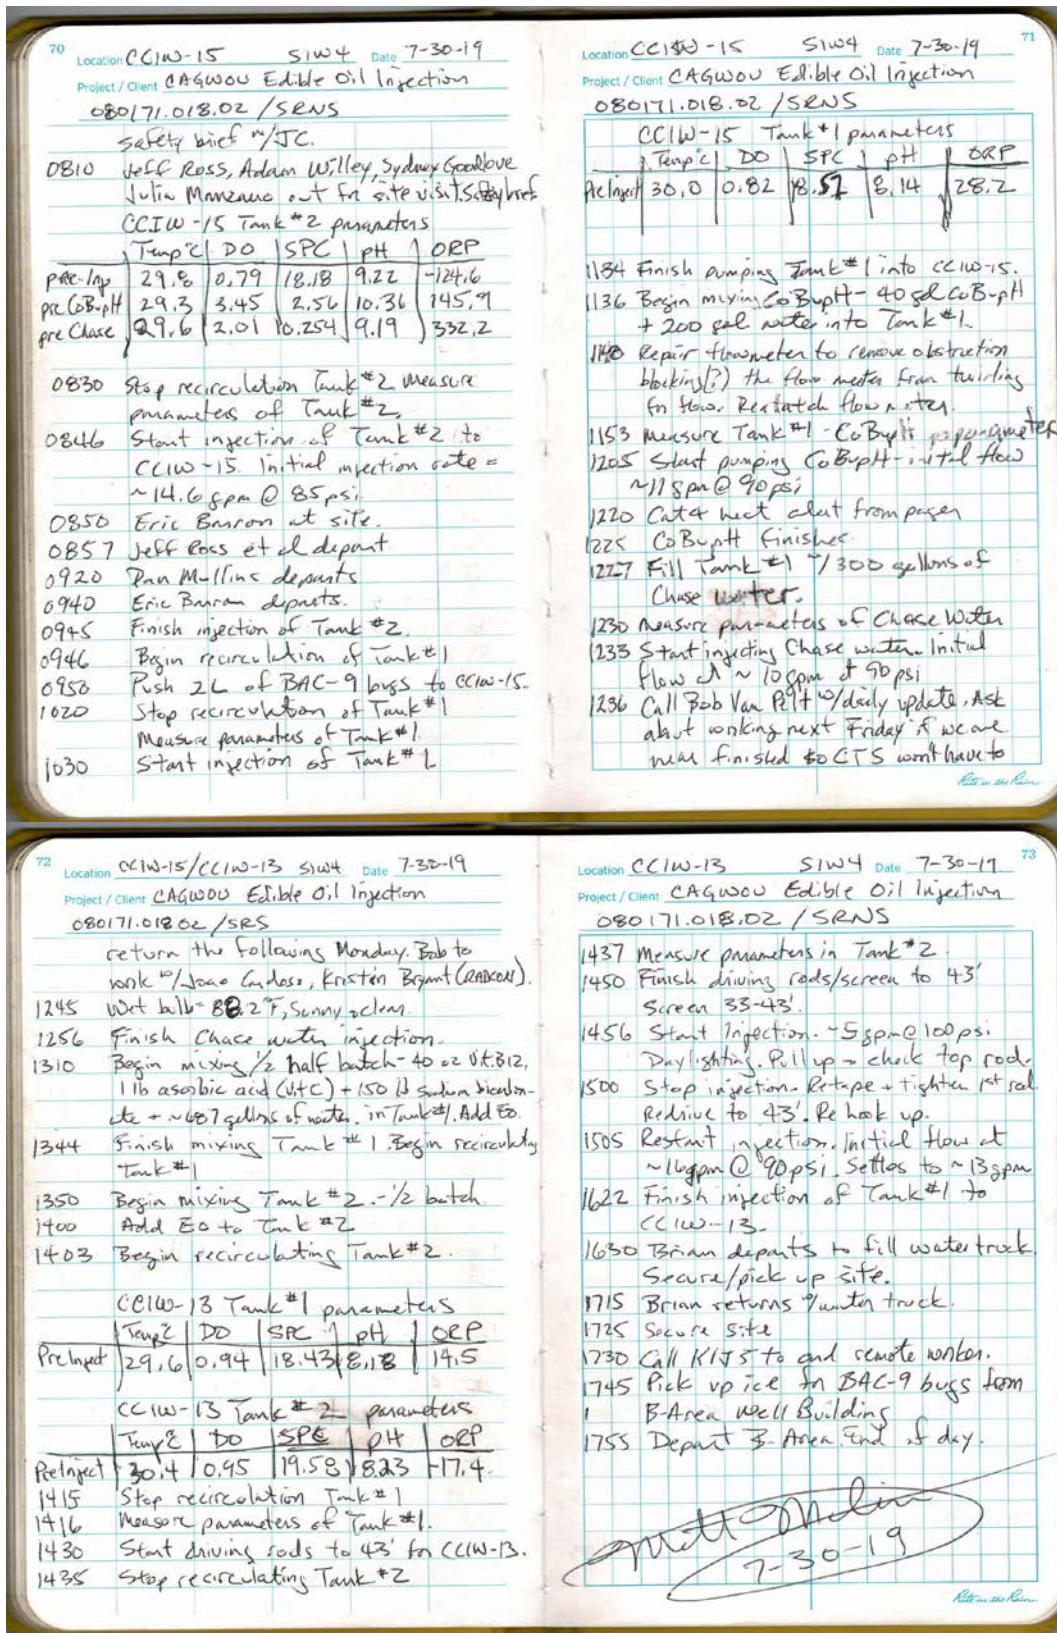 70
Location CCIW-15 SIW4 Date 7-30-19
Project / Client CAGWOU Edible Oil Injection
080171.018.02 /SRNS
safety brief w/JC.
0810 Jeff Ross, Adam Willey, Sydney Goodlove
Julia Manzano out for site visit. Safety brief
CCIW-15 Tank #2 parameters
Temp°C DO SPC pH ORP
pre-Inj 29.8 0.79 18.18 9.22 -124.6
pre CoBupH 29.3 3.45 2.56 10.36 145.9
pre Chase 29.6 2.01 0.254 9.19 332.2
0830 Stop recirculation Tank #2 measure
parameters of Tank #2.
0846 Start injection of Tank #2 to
CCIW-15. Initial injection rate =
~14.6 gpm @ 85 psi
0850 Eric Barron at site.
0857 Jeff Ross et al depart
0920 Dan Mullins departs
0940 Eric Barron departs.
0945 Finish injection of Tank #2.
0946 Begin recirculation of Tank #1
0950 Push 2L of BAC-9 bugs to CCIW-15.
1020 Stop recirculation of Tank #1
Measure parameters of Tank #1.
1030 Start injection of Tank #1
71
Location CCIW-15 SIW4 Date 7-30-19
Project / Client CAGWOU Edible Oil Injection
080171.018.02 /SRNS
CCIW-15 Tank #1 parameters
Temp°C DO SPC pH ORP
Pre Inject 30.0 0.82 18.57 8.14 28.2
1134 Finish pumping Tank #1 into CCIW-15.
1136 Begin mixing CoBupH - 40 gal CoBupH
+ 200 gal water into Tank #1.
1140 Repair flowmeter to remove obstruction
blocking(?) the flow meter from twirling
for flow. Reattatch flow meter.
1153 Measure Tank #1 - CoBupH parameter
1205 Start pumping CoBupH - initial flow
~11 gpm @ 90 psi
1220 Cat 4 heat alert from pager
1225 CoBupH finishes.
1227 Fill Tank #1 w/300 gallons of
Chase water.
1230 Measure parameters of Chase Water
1233 Start injecting Chase water. Initial
flow at ~10 gpm at 90 psi
1236 Call Bob Van Pelt w/daily update. Ask
about working next Friday if we are
near finished so CTS won't have to
Rite in the Rain
72
Location CCIW-15/CCIW-13 SIW4 Date 7-30-19
Project / Client CAGWOU Edible Oil Injection
080171.018.02 /SRS
return the following Monday. Bob to
work w/Joao Cardoso, Kristin Bryant (RADCON).
1245 Wet bulb = 88.2°F, Sunny & clear.
1256 Finish Chase water injection.
1310 Begin mixing 1/2 half batch - 40 oz Vit. B12,
1 lb asorbic acid (Vit C) + 150 lb sodium bicarbon-
ate + ~687 gallons of water in Tank #1. Add EO.
1344 Finish mixing Tank #1. Begin recirculating
Tank #1
1350 Begin mixing Tank #2. - 1/2 batch.
1400 Add EO to Tank #2
1403 Begin recirculating Tank #2.
CCIW-13 Tank #1 parameters
Temp°C DO SPC pH ORP
Pre Inject 29.6 0.94 18.43 8.18 14.5
CCIW-13 Tank #2 parameters
Temp°C DO SPC pH ORP
Pre Inject 30.4 0.95 19.58 8.23 -17.4
1415 Stop recirculation Tank #1
1416 Measure parameters of Tank #1.
1430 Start driving rods to 43' for CCIW-13.
1435 Stop recirculating Tank #2
73
Location CCIW-13 SIW4 Date 7-30-19
Project / Client CAGWOU Edible Oil Injection
080171.018.02 /SRNS
1437 Measure parameters in Tank #2.
1450 Finish driving rods/screen to 43'
Screen 33-43'.
1456 Start Injection. ~5 gpm @ 100 psi
Daylighting. Pull up & check top rod.
1500 Stop injection. Retape + tighten 1st rod
Redrive to 43'. Re hook up.
1505 Restart injection. Initial flow at
~16 gpm @ 90 psi. Settles to ~13 gpm
1622 Finish injection of Tank #1 to
CCIW-13.
1630 Brian departs to fill water truck
Secure/pick up site.
1715 Brian returns w/water truck.
1725 Secure site
1730 Call K1J5 to end remote worker.
1745 Pick up ice for BAC-9 bugs from
B-Area Well Building
1755 Depart B-Area. End of day.
7-30-19
Rite in the Rain